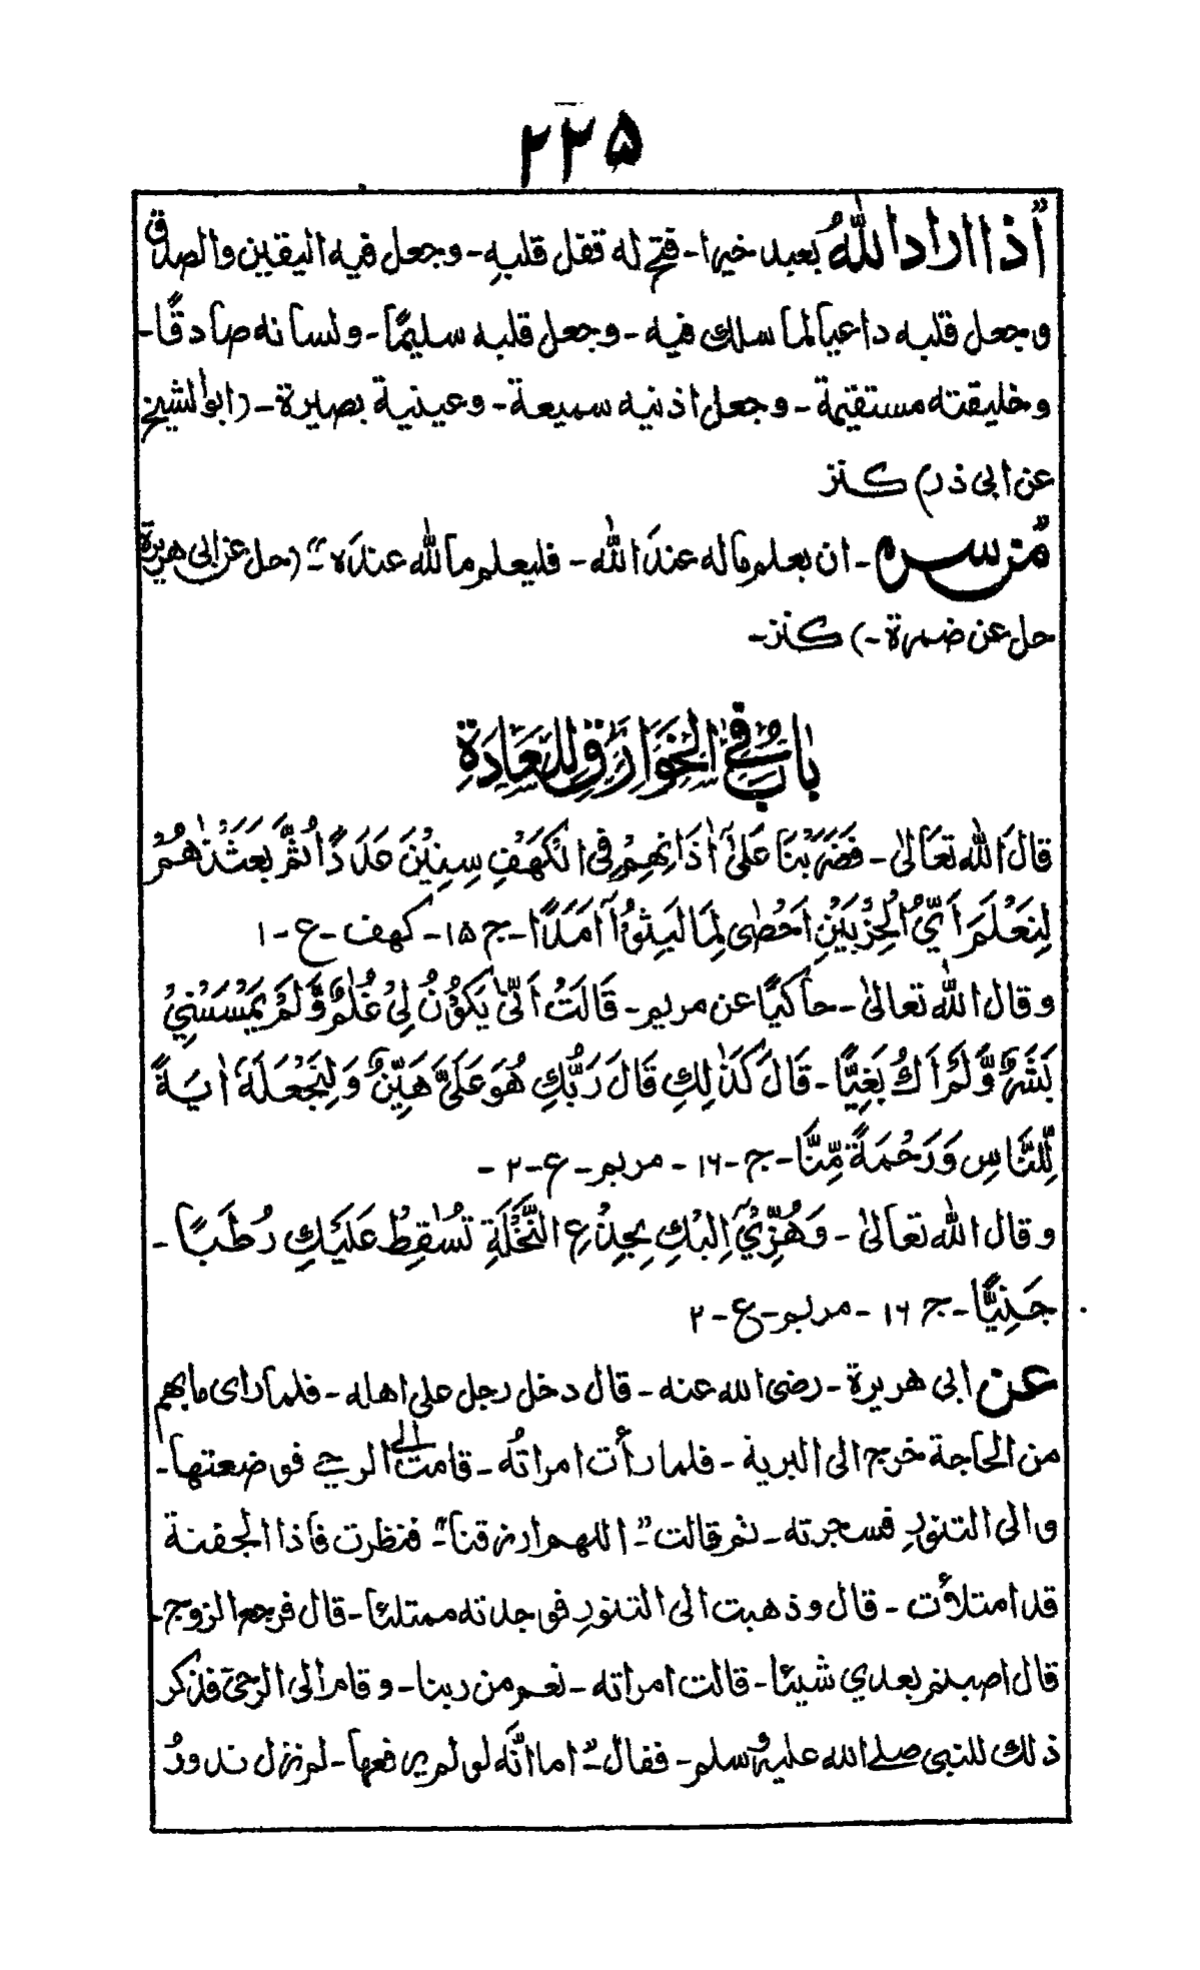 ۲۲۵
"اذا اراد اللهُ بعبد خيرا - فتح له قفل قلبهِ - وجعل فيه اليقين والصدق
وجعل قلبه داعيا لما سلك فيه - وجعل قلبه سليمًا - ولسانه صادقًا -
وخليقته مستقيمة - وجعل اذنيه سميعة - وعينية بصيرة - (ابوالشيخ
عن ابى ذر) كنز
"من سره - ان يعلم ماله عندَ الله - فليعلم ما لله عندَه" - (حل عن ابى هريرة
حل عن ضمرة -) كنز -
بَابٌ فِي الْخَوَارِقِ لِلْعَادَةِ
قالَ الله تعَالىٰ - فَضَرَبْنَا عَلَىٰٓ اٰذَانِهِمْ فِى الْكَهَفِ سِنِيْنَ عَدَدًا ثُمَّ بَعَثْنٰهُمْ
لِنَعْلَمَ اَيُّ الْحِزْبَيْنِ اَحْصٰى لِمَا لَبِثُوْٓا اَمَدًا - ج ۱۵ - كهف - ع - ۱
وقال الله تعالىٰ - حاكيًا عن مريم - قَالَتْ اَنّٰى يَكُوْنُ لِىْ غُلٰمٌ وَّلَمْ يَمْسَسْنِىْ
بَشَرٌ وَّلَمْ اَكُ بَغِيًّا - قَالَ كَذٰلِكِ قَالَ رَبُّكِ هُوَ عَلَىَّ هَيِّنٌ وَلِنَجْعَلَهٗ اٰيَةً
لِّلنَّاسِ وَرَحْمَةً مِّنَّا - ج - ۱۶ - مريم - ع - ۲ -
وقال الله تعالىٰ - وَهُزِّىْٓ اِلَيْكِ بِجِذْعِ النَّخْلَةِ تُسٰقِطْ عَلَيْكِ رُطَبًا -
جَنِيًّا - ج ۱۶ - مريم - ع - ۲
عن ابى هريرة - رضى الله عنه - قال دخل رجل على اهله - فلما راى ما بهم
من الحاجة خرج الى البرية - فلما رأت امراتُه - قامت الى الرحى فوضعتها -
والى التنورِ فسجرته - ثم قالت" - اللهم ارزقنا" - فنظرت فاذا الجفنة
قد امتلأت - قال وذهبت الى التنور فوجدته ممتلئا - قال فرجع الزوج -
قال اصبتم بعدي شيئا - قالت امراته - نعم من ربنا - وقام الى الرحى فذكر
ذلك للنبى صلى الله عليه وسلم - فقال" - اما انَّه لو لم يرفعها - لم تزل تدورُ